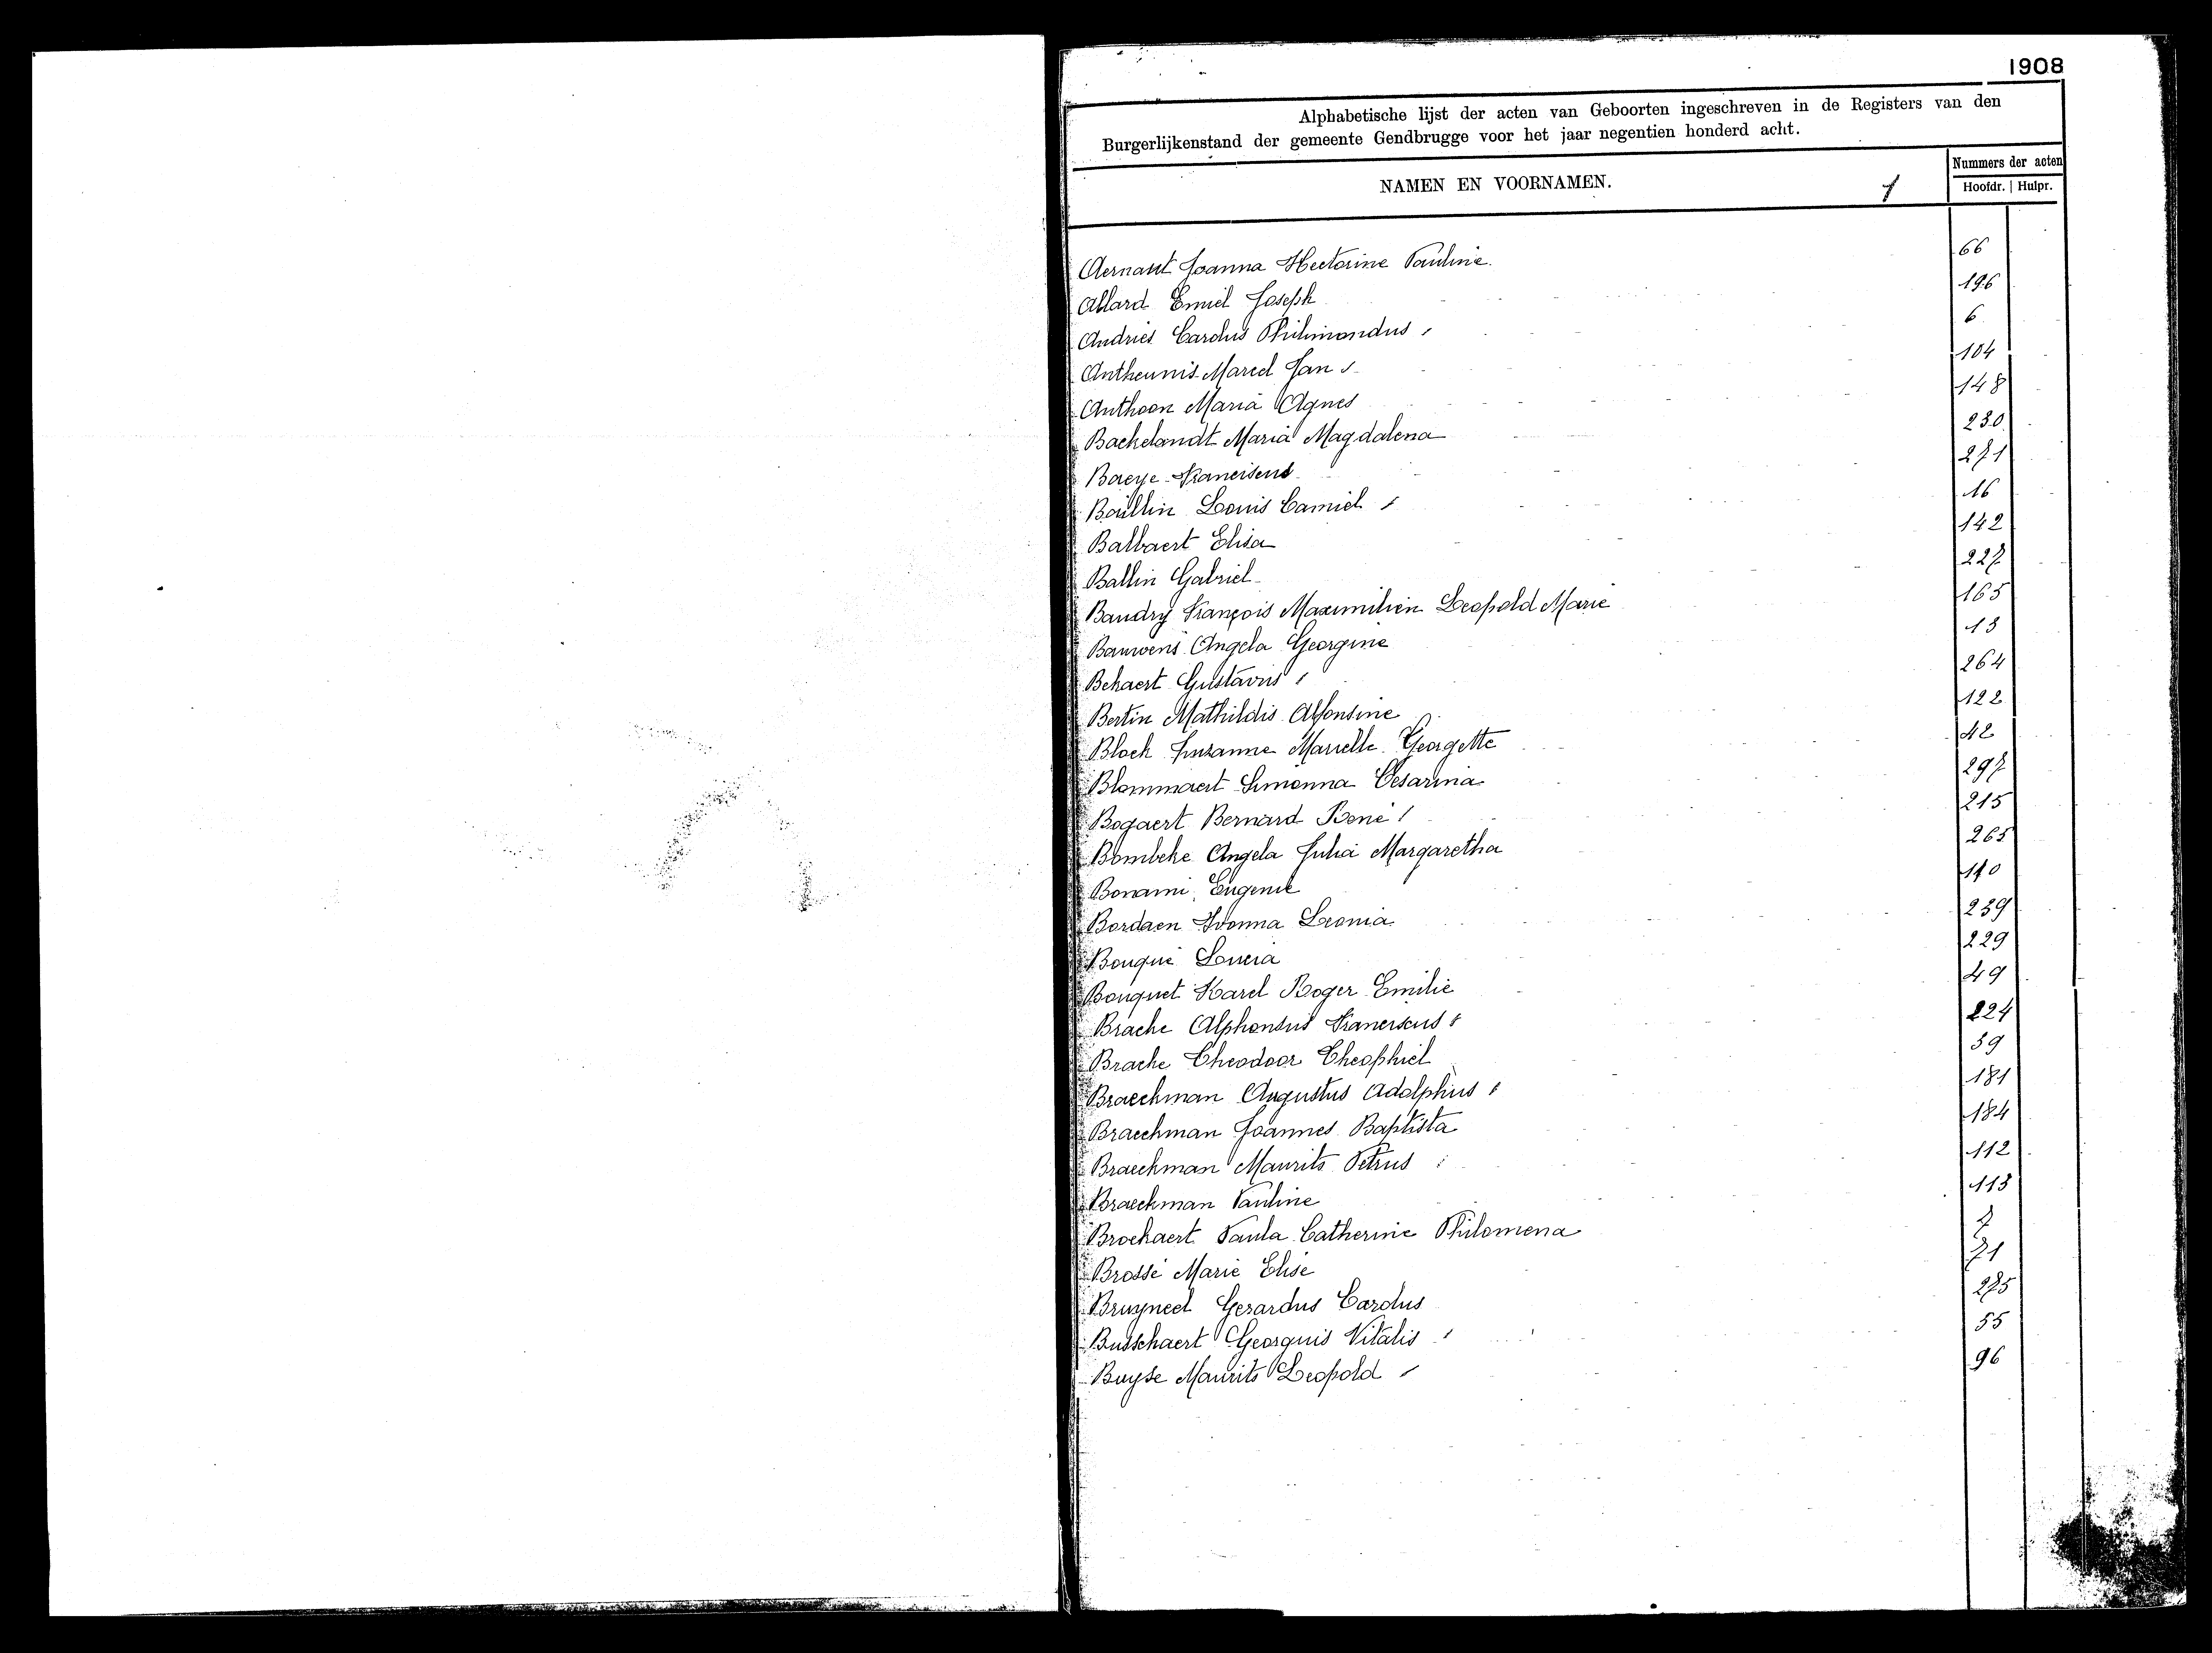 1908
Alphabetische lijst der acten van Geboorten ingeschreven in de Registers van den
Burgerlijkenstand der gemeente Gendbrugge voor het jaar negentien honderd acht.
NAMEN EN VOORNAMEN. 1 Nummers der acten
Hoofdr. Hulpr.
Aernaut Joanna Hectorine Pauline. 66
Allard Emiel Joseph 196
Andries Carolus Philimondus 6
Antheunis Marcel Jan 104
Anthoon Maria Agnes 148
Backelandt Maria Magdalena 230
Baeye Franciscus 271
Baillin Louis Camiel 16
Balbaert Elisa 142
Ballin Gabriel 227
Baudry François Maximilien Leopold Marie 165
Bauwens Angela Georgine 13
Bekaert Gustavus 264
Bertin Mathildis Alfonsine 122
Block Suzanne Marielle Georgette 42
Blommaert Simonna Cesarina 297
Bogaert Bernard René 215
Bombeke Angela Julia Margaretha 265
Bonami Eugenie 110
Bordaen Ivonna Leonia 239
Bouqué Loucia 229
Bouquet Karel Roger Emilie 49
Brache Alphonsus Franciscus 224
Brache Theodoor Theophiel 39
Braeckman Augustus Adolphus 181
Braeckman Joannes Baptista 184
Braeckman Maurits Petrus 112
Braeckman Pauline 113
Brockaert Paula Catherine Philomena 7
Brossé Marie Elise 71
Bruyneel Gerardus Carolus 275
Busschaert Georguis Vitalis 55
Buyse Maurits Leopold 96